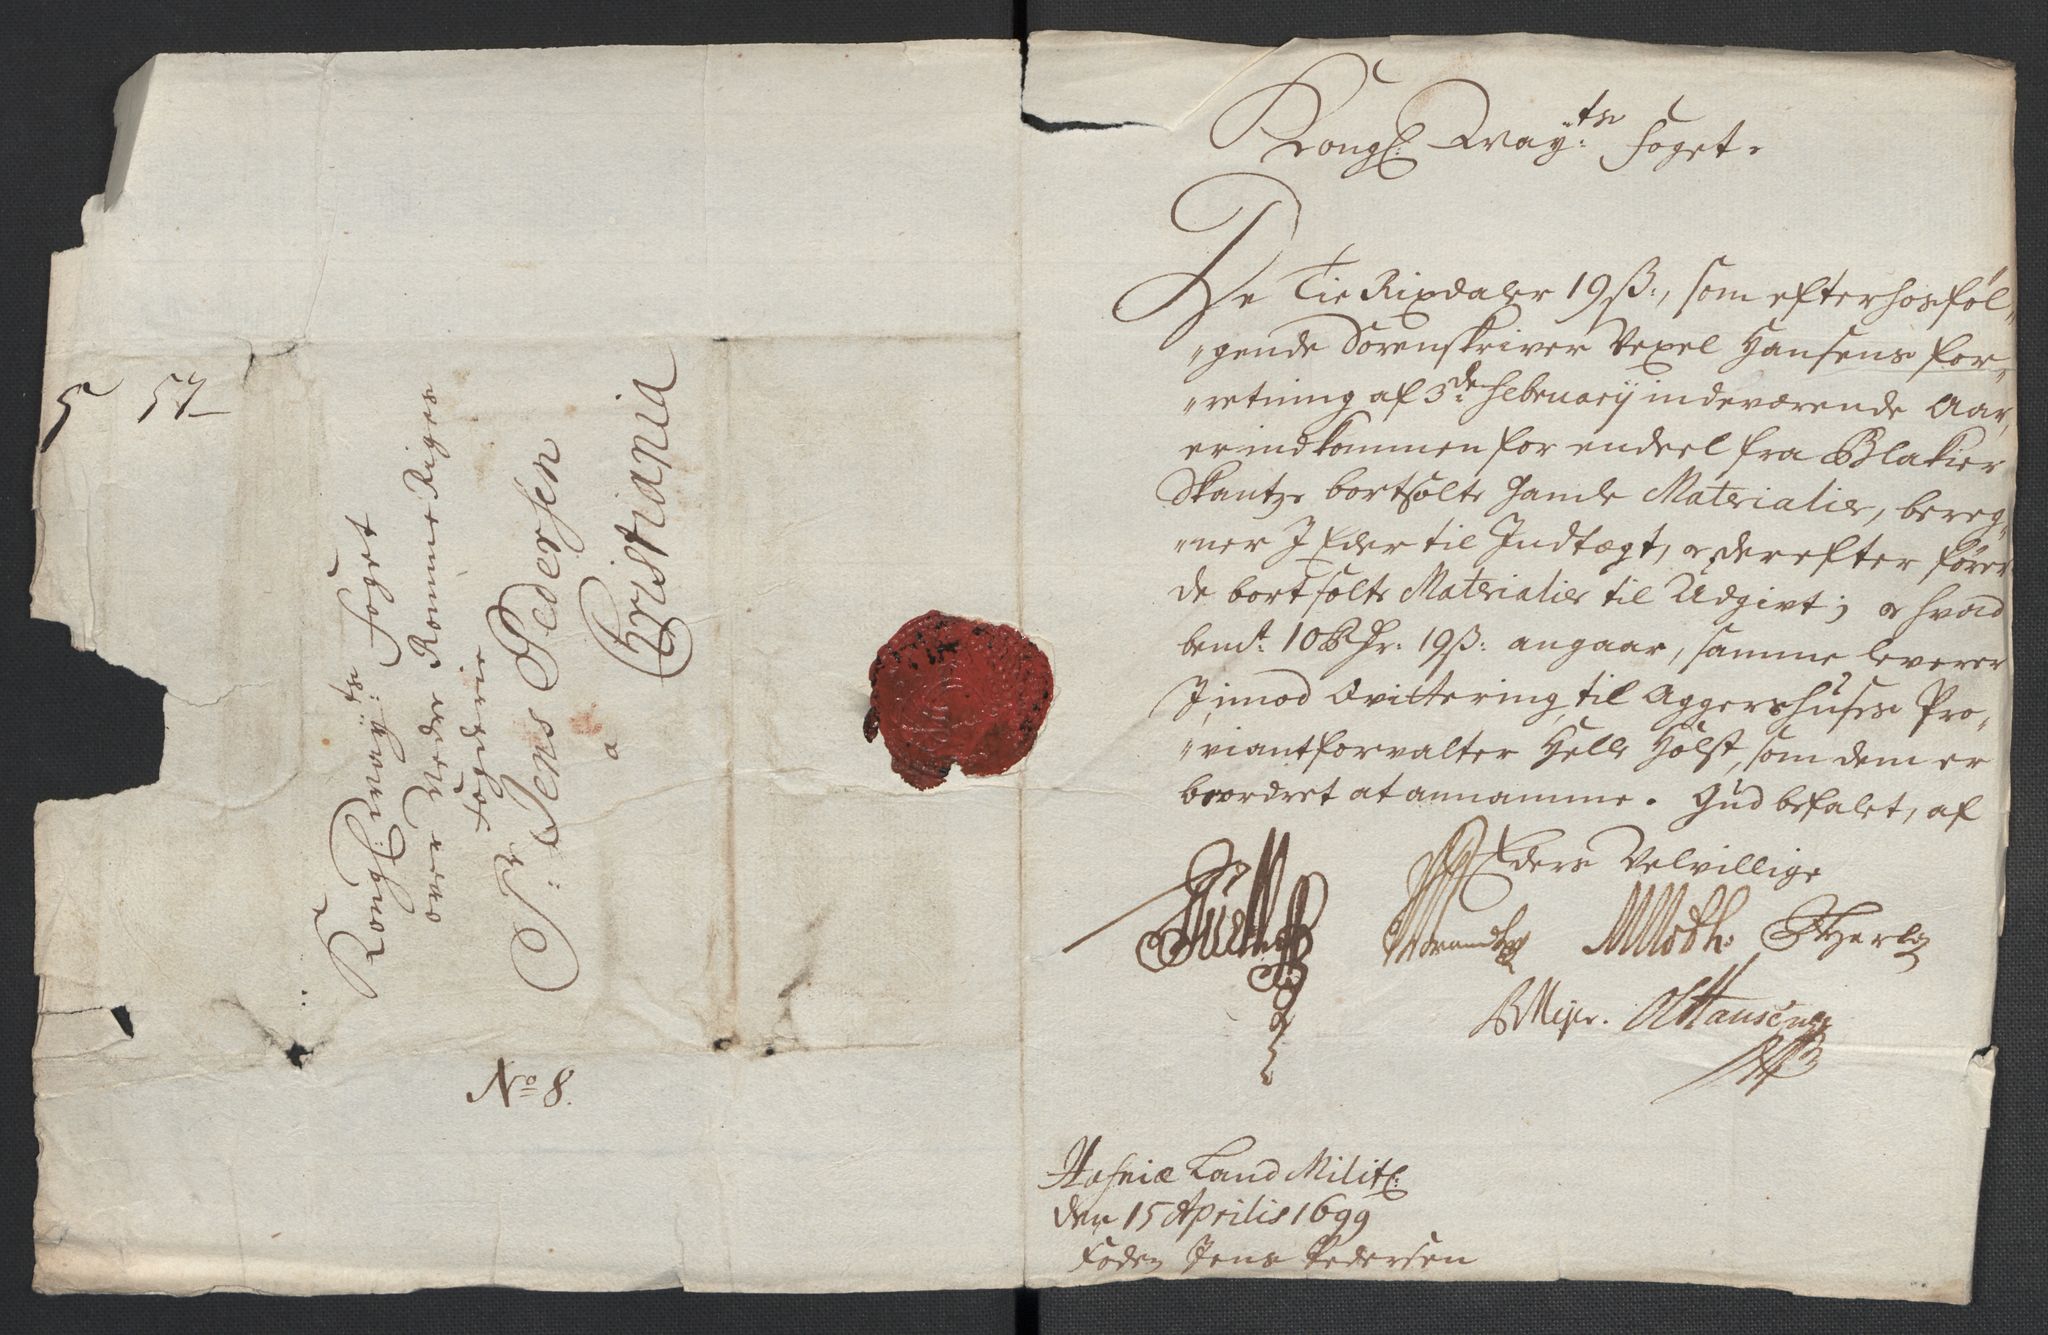 5 57
Kongl: May:ts Foget
over Nedre Romme Riges
Fogderie
Sr: Jens Pedersen
a
Christiania
No 8.
Kongl: May:ts Foget.
De Tie Rixdaler 19 ß:, som efterhosføl„
„gende Sorenskriver Vexel Hansens for„
„retning af 3de: Februarij indeværende Aar,
er indkommen for endeel fra Blakier
Skantze bortsolte Gamle Materialier, bereg„
„ner I Eder til Indtægt, og derefter fører
de bortsolte Materialier til Udgivt; og hvad
bemt: 10 Rdr: 19 ß: angaar, samme leverer
I, imod Qvittering til Aggershuses Pro„
„viantforvalter Helle Holst, som dem er
beordret at annamme. Gud befalet, af
Eders Velvillige
MMoth. Hertz
BMejer. OHansen
Hafniæ Land Militl:
den 15 Aprilis 1699
Foden Jens Pedersen